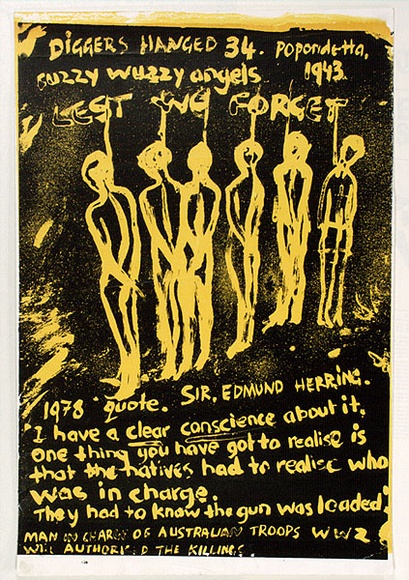 DIGGERS HANGED 34. Popondetta,
fuzzy wuzzy angels 1943.
LEST WE FORGET
1978 quote. SIR, EDMUND HERRING.
"I have a clear conscience about it,
one thing you have got to realise is
that the natives had to realise who
was in charge.
They had to know the gun was loaded"
MAN IN CHARGE OF AUSTRALIAN TROOPS WW2
WHO AUTHORISED THE KILLINGS